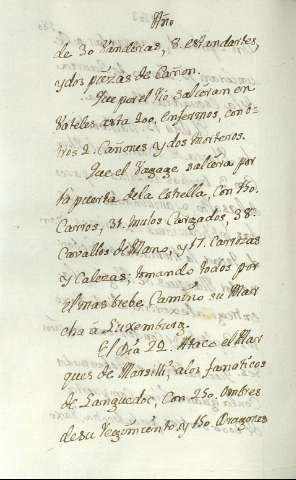 Año
de 30 Vanderas, 8. estandartes,
y dos piezas de Cañon.
Que por el Rio, saldran en
Vateles asta 200, enfermos, con o-
tros 2. Cañones y dos morteros.
Que el Vagage saldra por
la puerta dela estrella, Con
Carros, 31. mulos Cargados, 38.
Cavallos de Mano, y 17. Carrozas
y Calezas; tomando todos por
el mas brebe Camino su Mar-
cha a Luxemburg.
El Dia 22. Ataco el Mar
ques de Marsilli alos fanaticos
de Languedoc, Con 250 ombres
de su regimiento, y Dragones